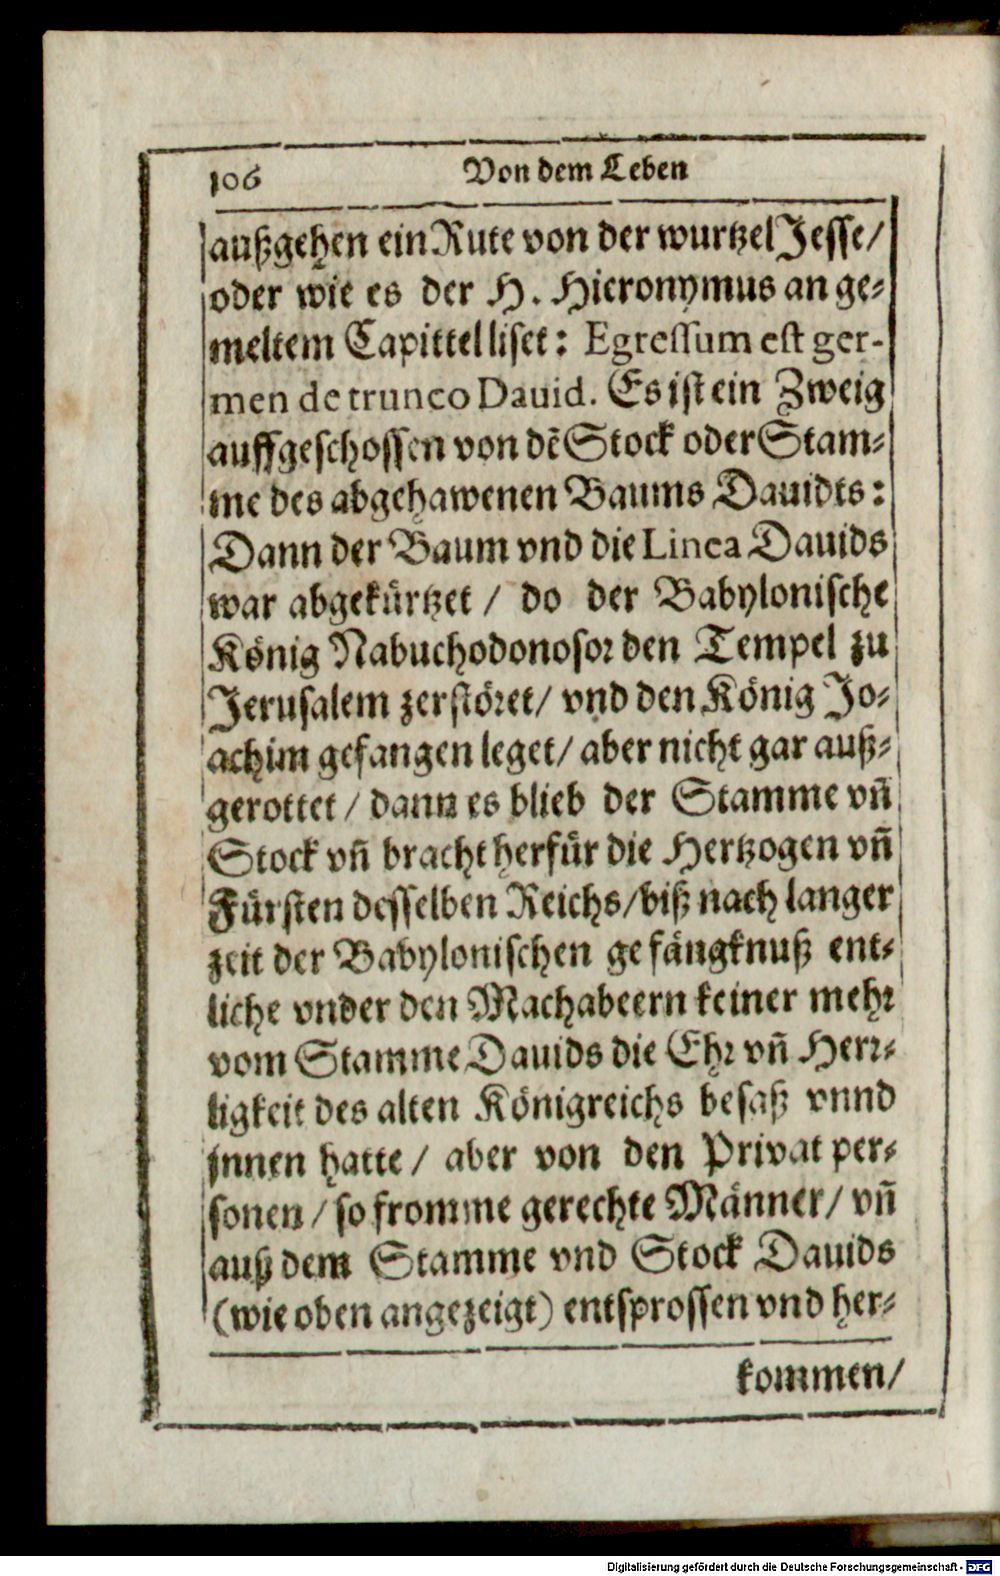 106 Von dem Leben
außgehen ein Rute von der wurtzel Jesse/
oder wie es der H. Hieronymus an ge-
meltem Capittel liset: Egressum est ger-
men de trunco Dauid. Es ist ein Zweig
auffgeschossen von dē Stock oder Stam-
me des abgehawenen Baums Dauidts:
Dann der Baum vnd die Linea Dauids
war abgekürtzet / do der Babylonische
König Nabuchodonosor den Tempel zu
Jerusalem zerstöret/ vnd den König Jo-
achim gefangen leget/ aber nicht gar auß-
gerottet / dann es blieb der Stamme vñ
Stock vñ bracht herfür die Hertzogen vñ
Fürsten desselben Reichs/biß nach langer
zeit der Babylonischen gefängknuß ent-
liche vnder den Machabeern keiner mehr
vom Stamme Dauids die Ehr vñ Herr-
ligkeit des alten Königreichs besaß vnnd
jnnen hatte / aber von den Privat per-
sonen / so fromme gerechte Männer/ vñ
auß dem Stamme vnd Stock Dauids
(wie oben angezeigt) entsprossen vnd her-
kommen/
Digitalisierung gefördert durch die Deutsche Forschungsgemeinschaft - DFG